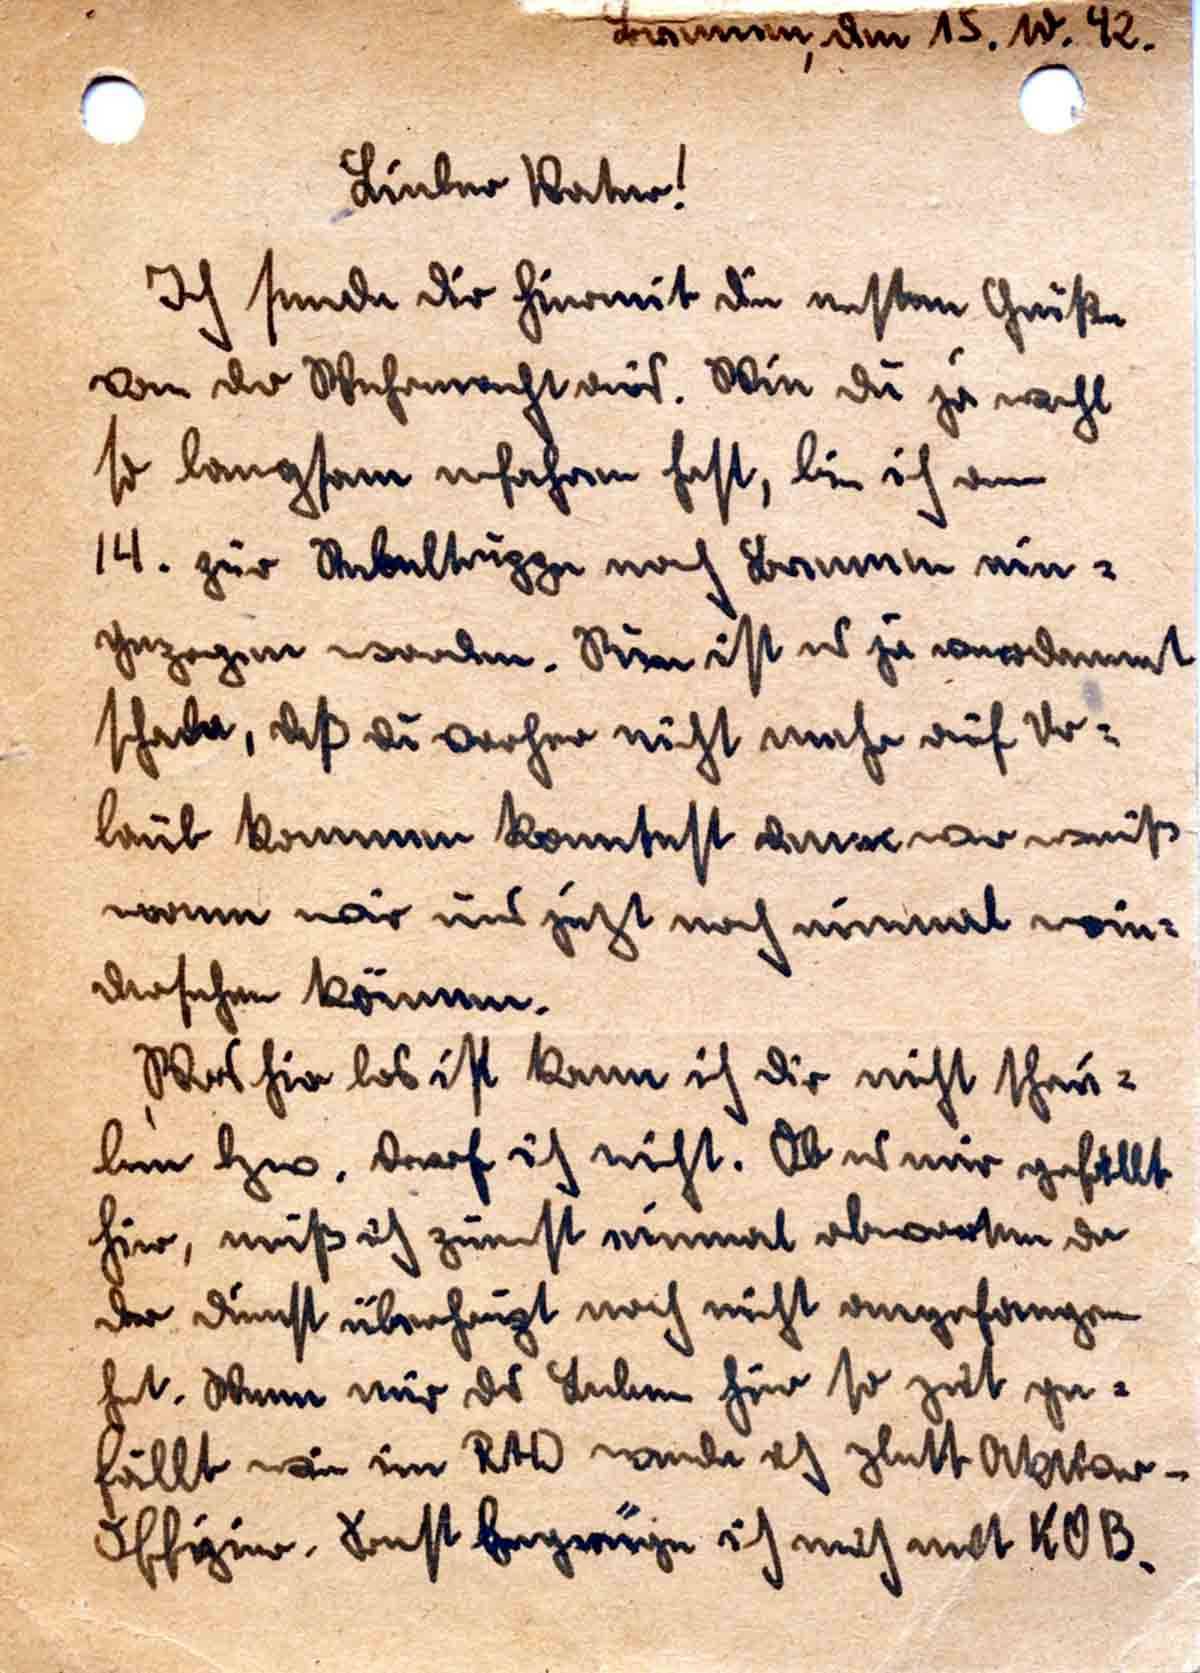 Bremen, den 15. 10. 42.
Lieber Vater!
Ich sende dir hiermit die ersten Grüße
von der Wehrmacht aus. Wie du ja wohl
so langsam erfahren hast, bin ich am
14. zur Nebeltruppe nach Bremen ein-
gezogen worden. Nun ist es ja verdammt
schade, daß du vorher nicht mehr auf Ur-
laub kommen konntest denn wer weiß
wann wir uns jetzt noch einmal wie-
dersehen können.
Was hier los ist kann ich dir nicht schrei-
ben bzw. darf ich nicht. Ob es mir gefällt
hier, muß ich zuerst einmal abwarten da
der Dienst überhaupt noch nicht angefangen
hat. Wenn mir das Leben hier so gut ge-
fällt wie im RAD werde ich glatt Aktiver-
Offizier. Sonst begnüge ich mich mit KOB.